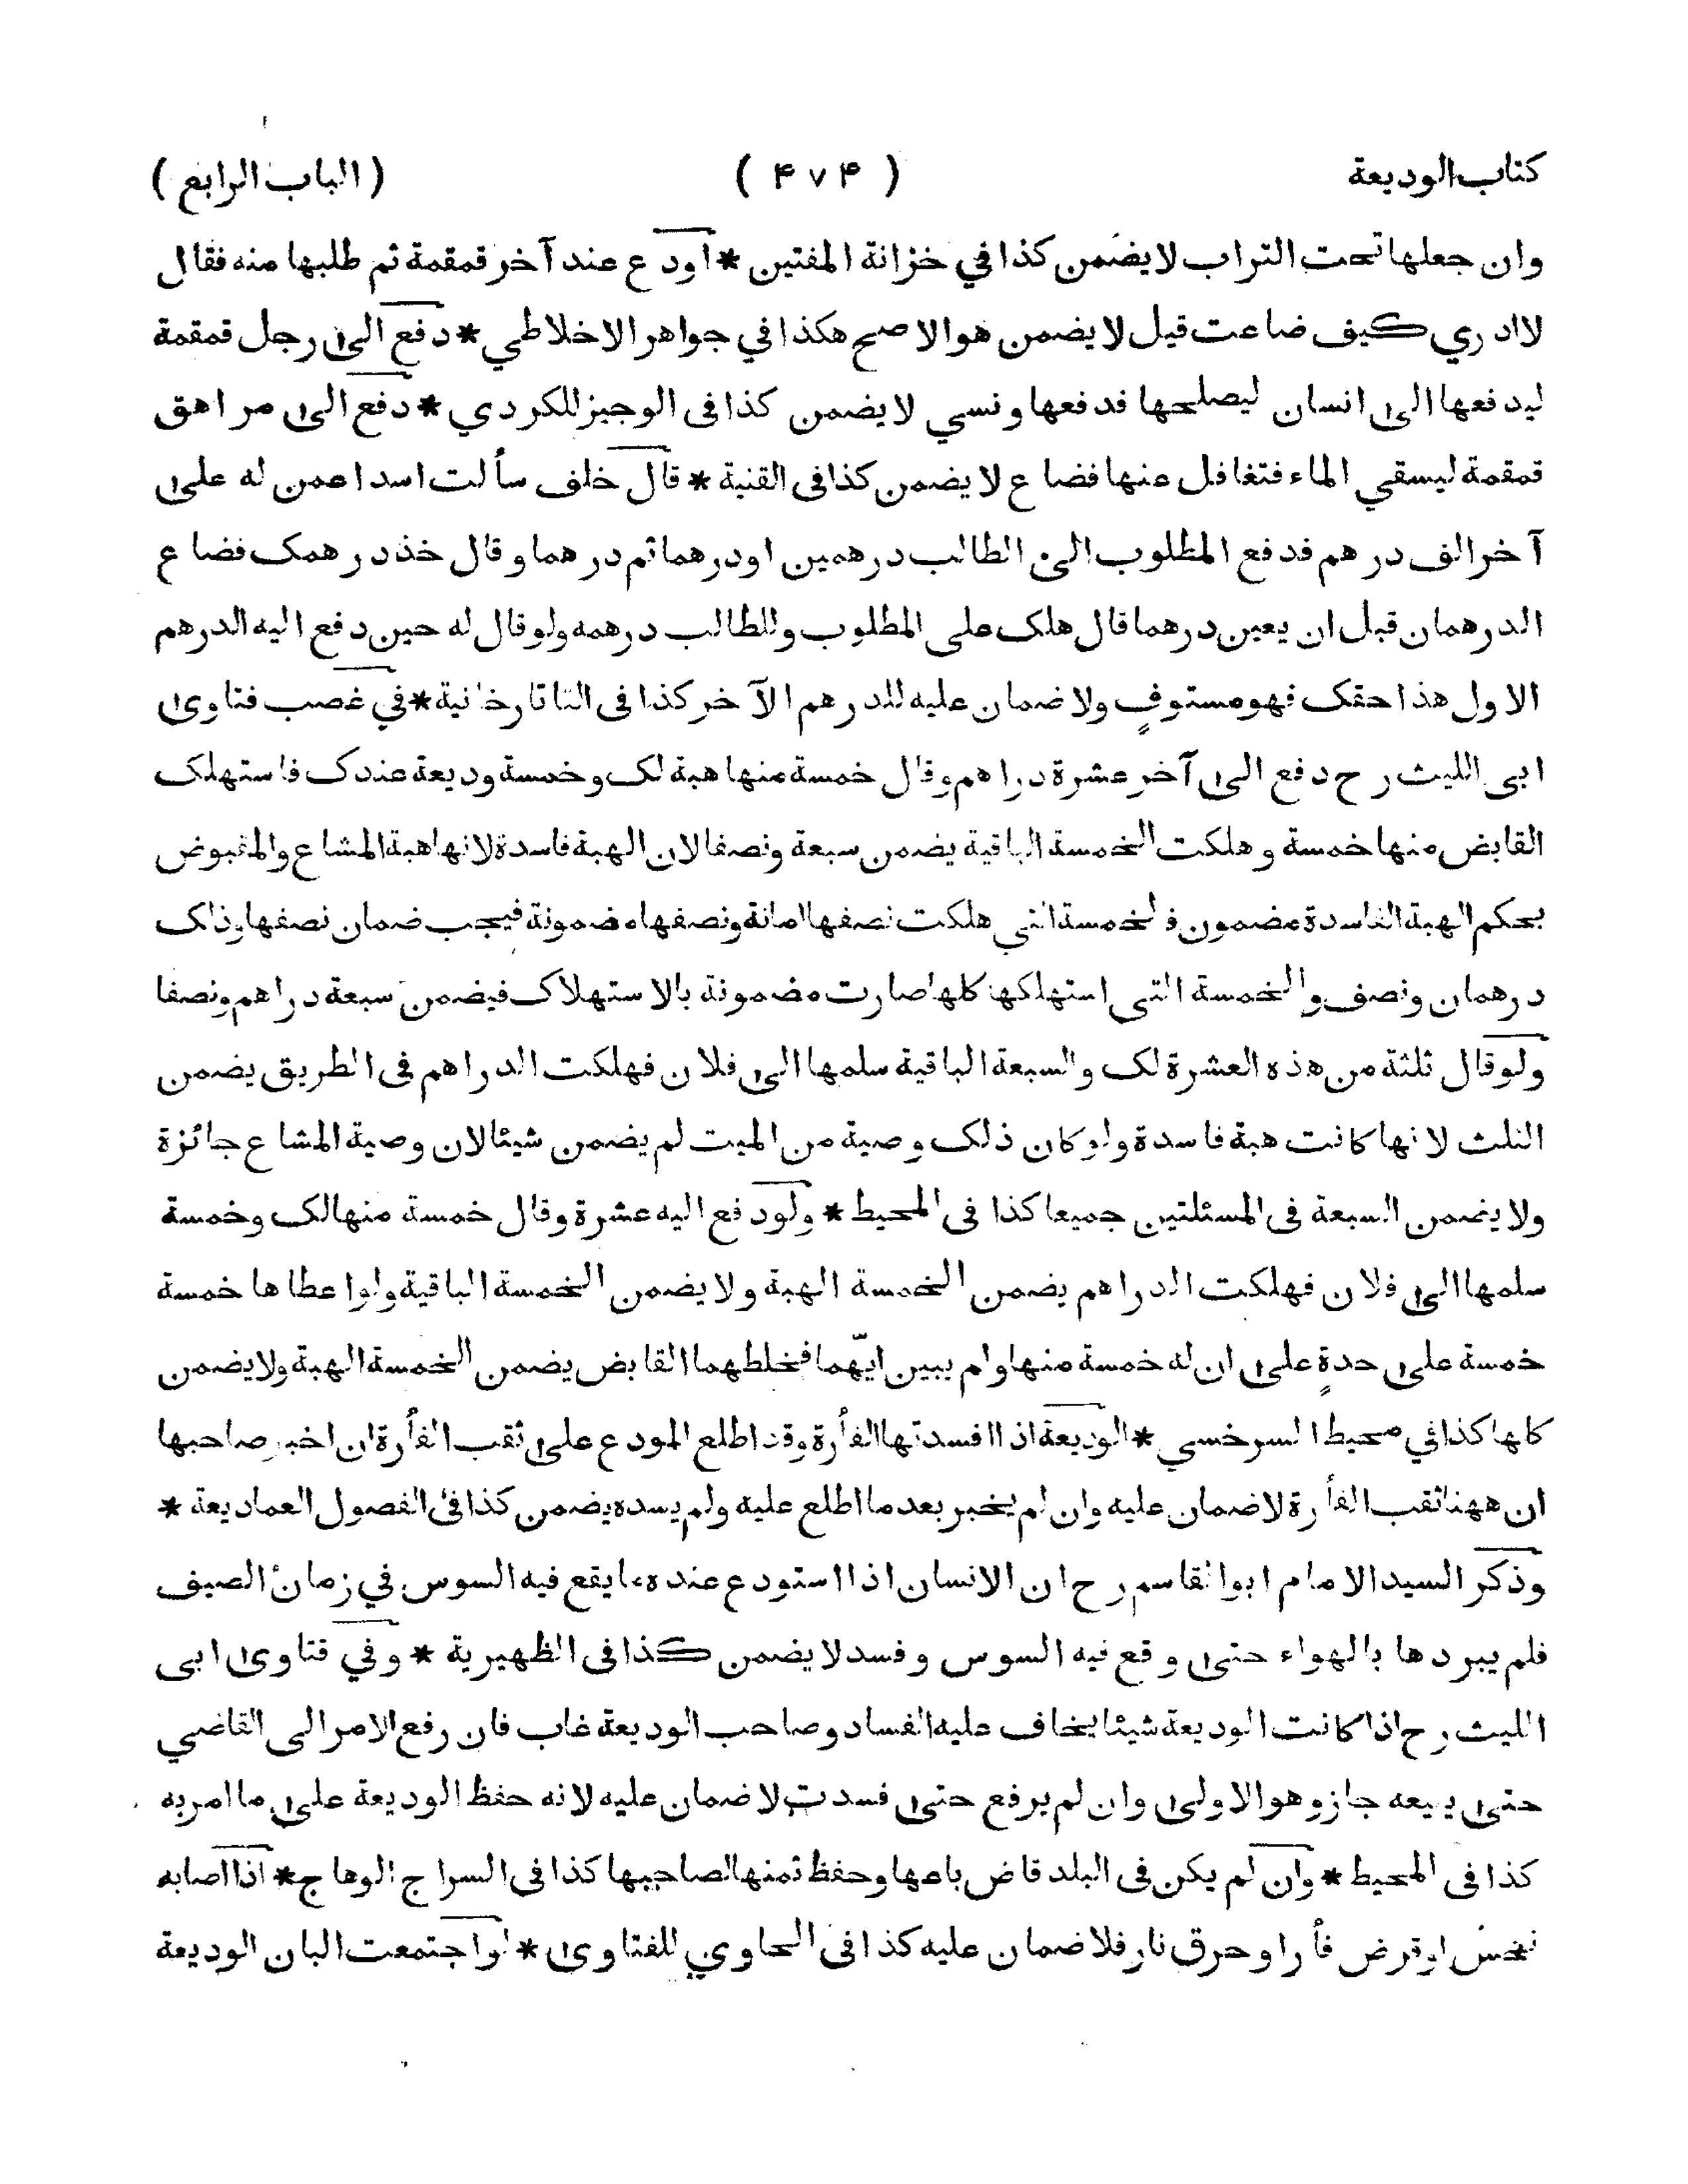 كتاب الوديعة ( ۴۷۴ ) ( الباب الرابع )
وان جعلها تحت التراب لا يضمن كذا في خزانة المفتين * اودع عند آخر قمقمة ثم طلبها منه فقال
لا ادري كيف ضاعت قيل لا يضمن هو الاصح هكذا في جواهر الاخلاطي * دفع الى رجل قمقمة
ليدفعها الى انسان ليصلحها فدفعها ونسي لا يضمن كذا فى الوجيز للكردي * دفع الى مراهق
قمقمة ليسقي الماء فتغافل عنها فضاع لا يضمن كذا فى القنية * قال خلف سألت اسدا عمن له على
آخر الف درهم فدفع المطلوب الى الطالب درهمين او درهما ثم درهما وقال خذ درهمك فضاع
الدرهمان قبل ان يعين درهما قال هلك على المطلوب وللطالب درهمه ولو قال له حين دفع اليه الدرهم
الاول هذا حقك فهو مستوفٍ ولا ضمان عليه للدرهم الآخر كذا فى التاتارخانية * في غصب فتاوى
ابى الليث رح دفع الى آخر عشرة دراهم وقال خمسة منها هبة لك وخمسة وديعة عندك فاستهلك
القابض منها خمسة وهلكت الخمسة الباقية يضمن سبعة ونصفا لان الهبة فاسدة لانها هبة المشاع والمقبوض
بحكم الهبة الفاسدة مضمون فالخمسة التي هلكت نصفها امانة ونصفها مضمونة فيجب ضمان نصفها وذلك
درهمان ونصف والخمسة التى استهلكها كلها صارت مضمونة بالاستهلاك فيضمن سبعة دراهم ونصفا
ولو قال ثلثة من هذه العشرة لك والسبعة الباقية سلمها الى فلان فهلكت الدراهم فى الطريق يضمن
الثلث لانها كانت هبة فاسدة ولو كان ذلك وصية من الميت لم يضمن شيئا لان وصية المشاع جائزة
ولا يضمن السبعة فى المسئلتين جميعا كذا فى المحيط * ولو دفع اليه عشرة وقال خمسة منها لك وخمسة
سلمها الى فلان فهلكت الدراهم يضمن الخمسة الهبة ولا يضمن الخمسة الباقية ولو اعطاها خمسة
خمسة على حدةٍ على ان له خمسة منها ولم يبين ايّهما فخلطهما القابض يضمن الخمسة الهبة ولا يضمن
كلها كذا في محيط السرخسي * الوديعة اذا افسدتها الفأرة وقد اطلع المودع على ثقب الفأرة ان اخبر صاحبها
ان ههنا ثقب الفأرة لا ضمان عليه وان لم يخبر بعد ما اطلع عليه ولم يسده يضمن كذا فى الفصول العمادية *
وذكر السيد الامام ابو القاسم رح ان الانسان اذا استودع عنده ما يقع فيه السوس في زمان الصيف
فلم يبردها بالهواء حتى وقع فيه السوس وفسد لا يضمن كذا فى الظهيرية * وفي فتاوى ابى
الليث رح اذا كانت الوديعة شيئا يخاف عليه الفساد وصاحب الوديعة غاب فان رفع الامر الى القاضي
حتى يبيعه جاز وهو الاولى وان لم يرفع حتى فسدت لا ضمان عليه لانه حفظ الوديعة على ما امر به
كذا فى المحيط * وان لم يكن فى البلد قاض باعها وحفظ ثمنها لصاحبها كذا فى السراج الوهاج * اذا اصابه
نخس او قرض فأر او حرق نار فلا ضمان عليه كذا فى الحاوي للفتاوى * لو اجتمعت البان الوديعة